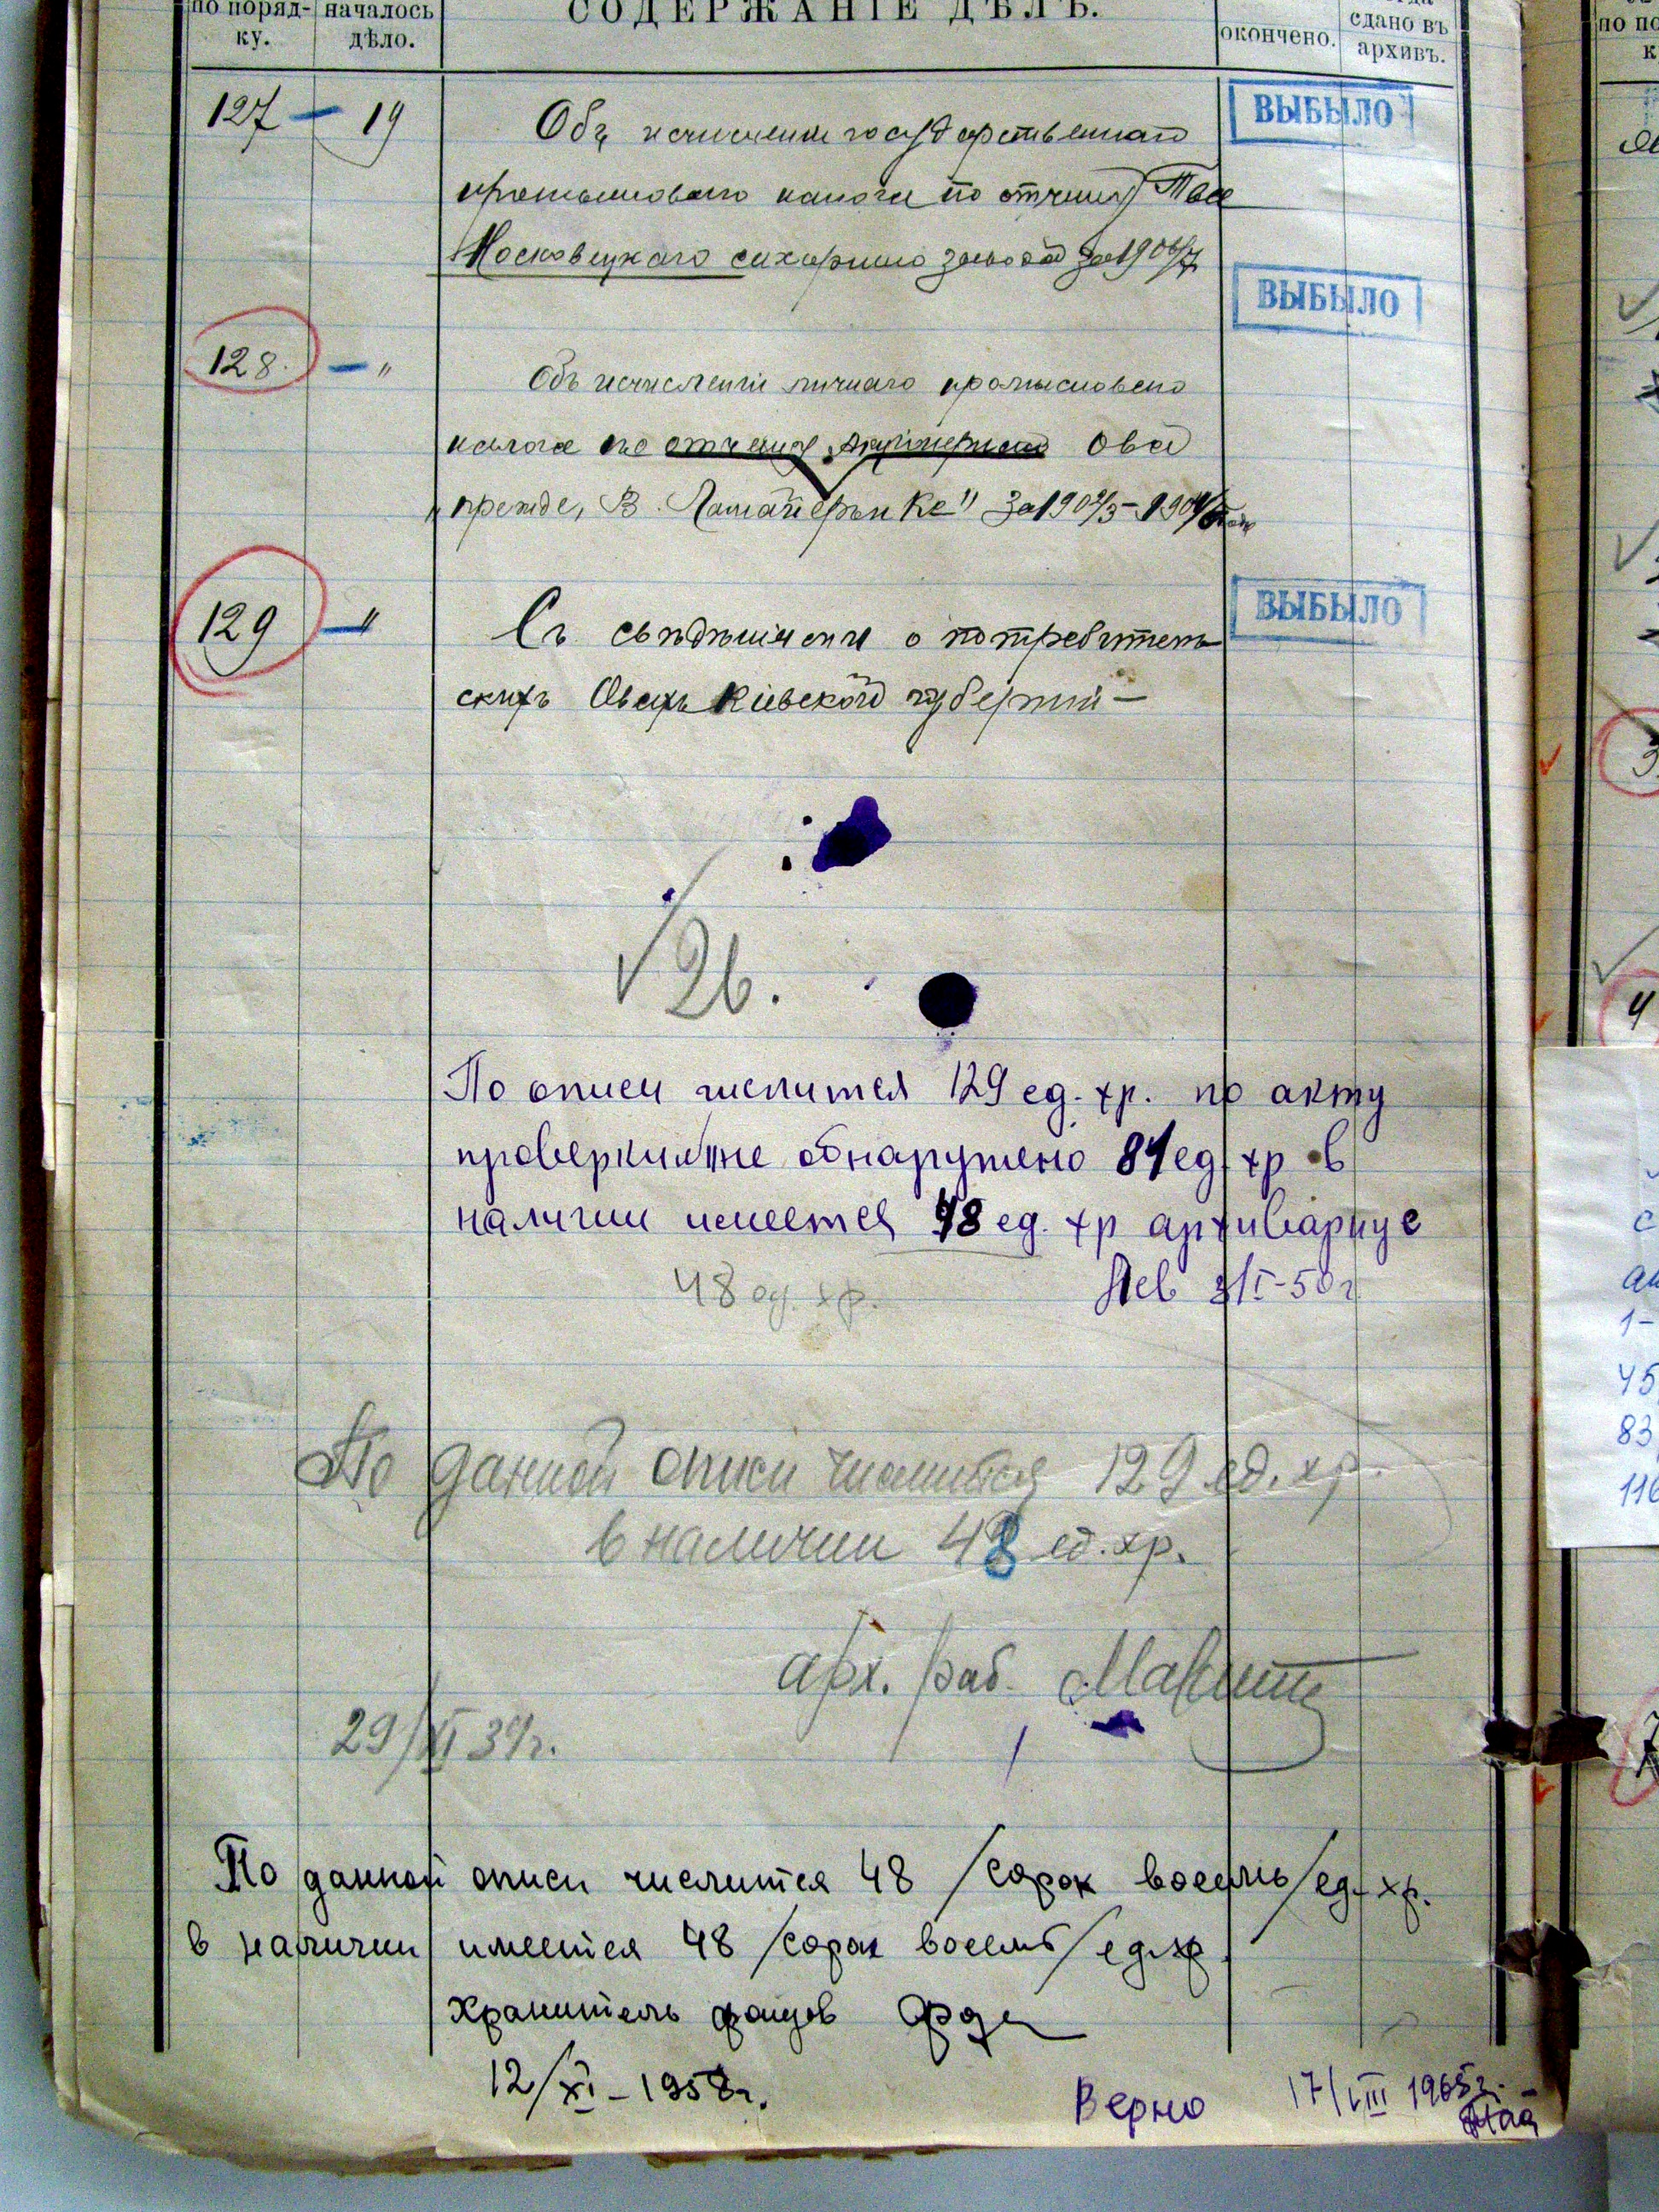 по поряд-
ку.
началось
дѣло.
СОДЕРЖАНІЕ ДѢЛЪ.
окончено.
сдано въ
архивъ.
127 — 19
Объ исчислении государственнаго
промысловаго налога по отчету Тва
Московецкаго сахарнаго завода за 1906/7
ВЫБЫЛО
ВЫБЫЛО
128. — "
Объ исчислении личнаго промысловаго
налога по отчету Акціонернаго Ова
прежде, В. и Ко" за 1902/3 - 1904/5
129 — "
Съ свѣдѣніями о потребитель
скихъ Овахъ Кіевской губерніи —
ВЫБЫЛО
√ 26.
По описи числится 129 ед. хр. по акту
проверки не обнаружено 81 ед. хр в
наличии имеется 48 ед. хр архивариус
48 ед. хр.
I-50 г.
По данной описи числится 129 ед. хр.
в наличии 48 ед. хр.
арх. раб.
29/XI 39г.
По данной описи числится 48 /сорок восемь/ ед. хр.
в наличии имеется 48 /сорок восемь/ ед. хр.
Хранитель фондов
12/XI - 1958г.
Верно 17/VIII 1965г.